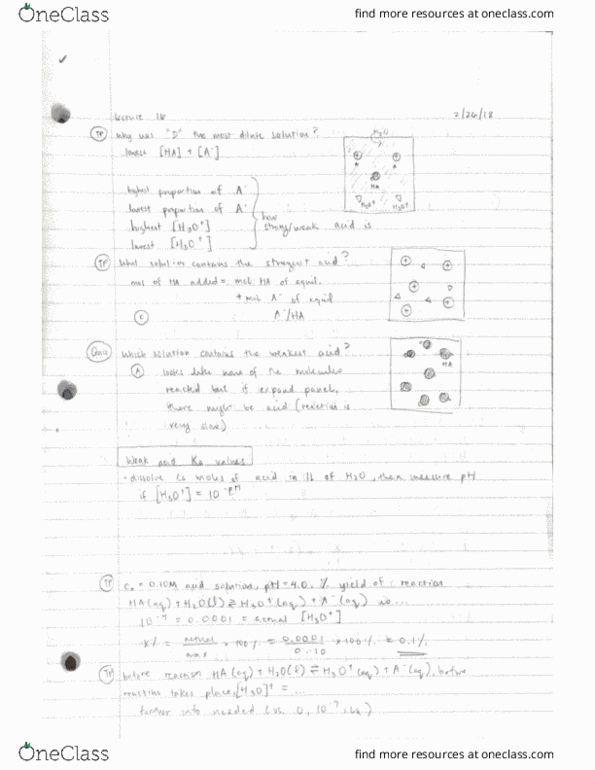 OneClass
find more resources at oneclass.com
Lecture 16
2/26/18
TP why was "D" the most dilute solution?
lowest [HA] + [A⁻]
H₂O
A
A
HA
H₃O⁺
H₃O⁺
highest proportion of A⁻
lowest proportion of A⁻
highest [H₃O⁺]
lowest [H₃O⁺]
how
strong/weak acid is
TP What solution contains the strongest acid?
mol of HA added = mol HA of equil.
+ mol A⁻ of equil
C
A⁻/HA
Quiz Which solution contains the weakest acid?
A looks like none of the molecules
reacted but if expand panel,
there might be acid (reaction is
very slow)
HA
Weak acid Ka values
· dissolve C₀ moles of acid in 1L of H₂O, then measure pH
if [H₃O⁺] = 10^-pH
TP C₀ = 0.10M acid solution, pH = 4.0. % yield of reaction
HA(aq) + H₂O(l) ⇌ H₃O⁺(aq) + A⁻(aq) is...
10⁻⁴ = 0.0001 = actual [H₃O⁺]
= actual/max × 100% = 0.0001/0.10 × 100% = 0.1%
TP before reaction HA(aq) + H₂O(l) ⇌ H₃O⁺(aq) + A⁻(aq), before
reaction takes place, [H₃O]⁺ = ...
further info needed (vs. 0, 10⁻⁷, C₀)
OneClass
find more resources at oneclass.com